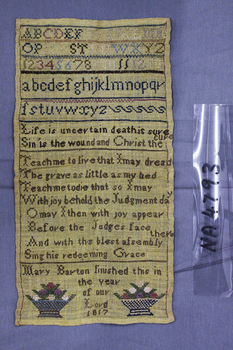 ABCDEF
OP ST WXYZ
12345678 11 12
abcdefghijklmnopqr
stuvwxyz
Life is uncertain death is sure
Sin is the wound and Christ the cure
Teach me to live that I may dread
The grave as little as my bed
Teach me to die that so I may
With joy behold the Judgment day
O may I then with joy appear
Before the Judges face
And with the blest assembly there
Sing his redeeming Grace
Mary Barton finished this in
the year
of our
Lord
1817
NA4793